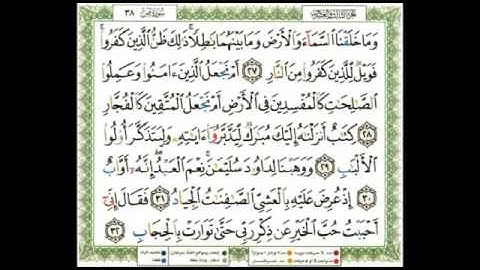 سورة ص ٣٨
وَمَا خَلَقْنَا السَّمَآءَ وَالْأَرْضَ وَمَا بَيْنَهُمَا بَٰطِلًا ۚ ذَٰلِكَ ظَنُّ الَّذِينَ كَفَرُوا۟ ۚ
فَوَيْلٌ لِّلَّذِينَ كَفَرُوا۟ مِنَ النَّارِ ﴿٢٧﴾ أَمْ نَجْعَلُ الَّذِينَ ءَامَنُوا۟ وَعَمِلُوا۟
الصَّٰلِحَٰتِ كَالْمُفْسِدِينَ فِى الْأَرْضِ أَمْ نَجْعَلُ الْمُتَّقِينَ كَالْفُجَّارِ
﴿٢٨﴾ كِتَٰبٌ أَنزَلْنَٰهُ إِلَيْكَ مُبَٰرَكٌ لِّيَدَّبَّرُوٓا۟ ءَايَٰتِهِۦ وَلِيَتَذَكَّرَ أُو۟لُوا۟
الْأَلْبَٰبِ ﴿٢٩﴾ وَوَهَبْنَا لِدَاوُۥدَ سُلَيْمَٰنَ ۚ نِعْمَ الْعَبْدُ ۖ إِنَّهُۥٓ أَوَّابٌ
﴿٣٠﴾ إِذْ عُرِضَ عَلَيْهِ بِالْعَشِىِّ الصَّٰفِنَٰتُ الْجِيَادُ ﴿٣١﴾ فَقَالَ إِنِّىٓ
أَحْبَبْتُ حُبَّ الْخَيْرِ عَن ذِكْرِ رَبِّى حَتَّىٰ تَوَارَتْ بِالْحِجَابِ ﴿٣٢﴾